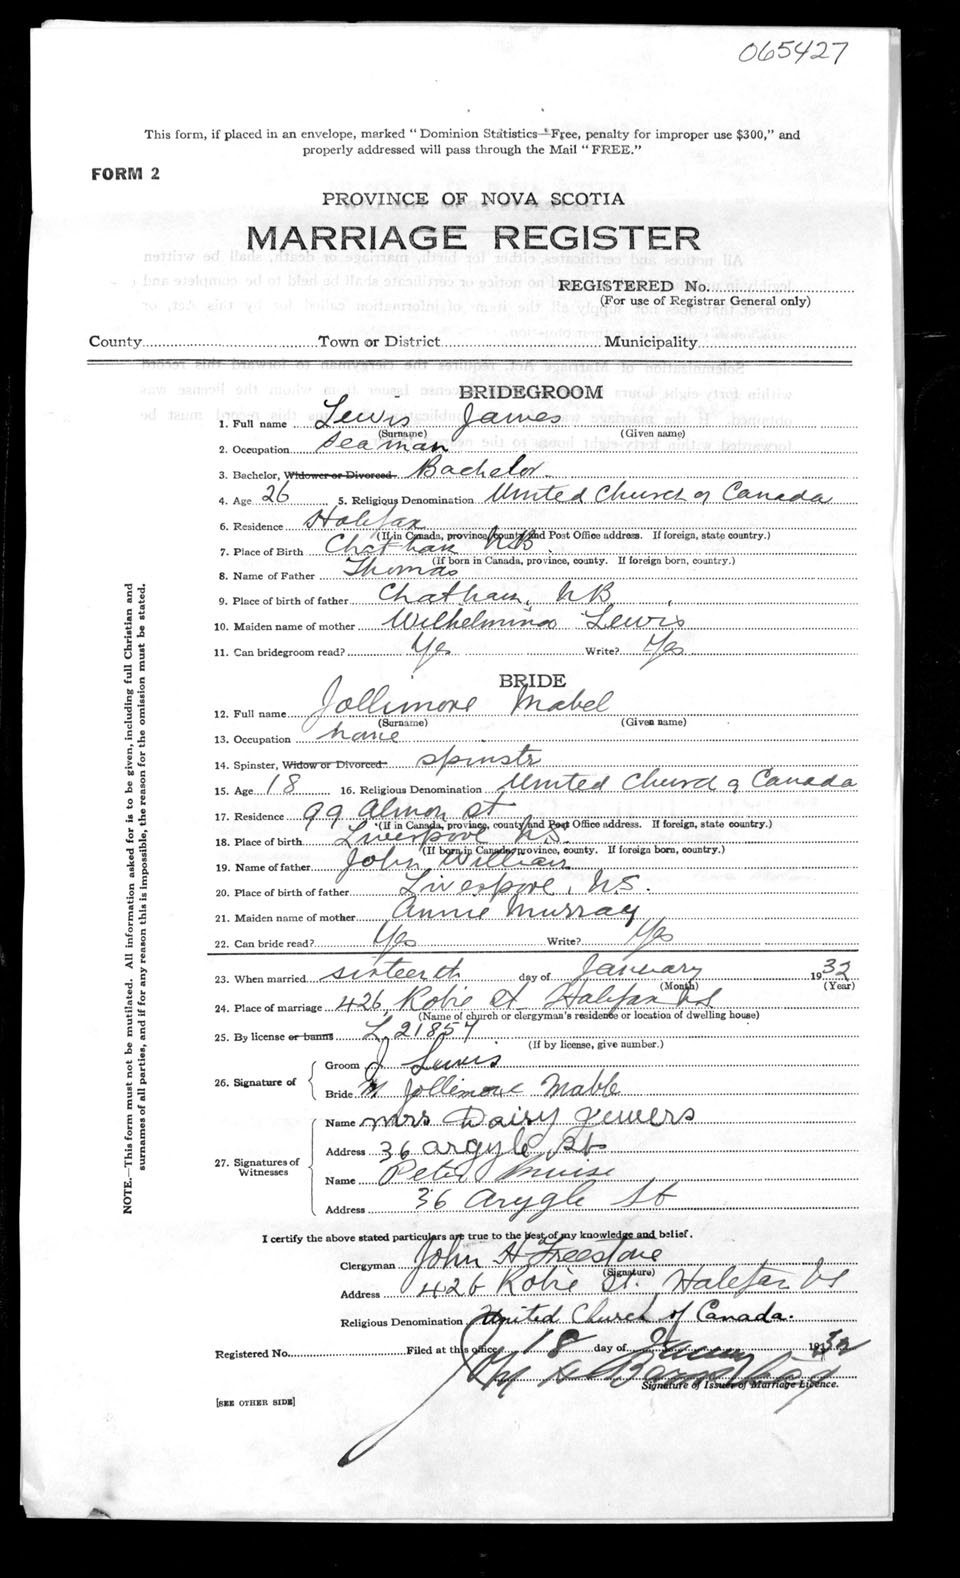 065427
This form, if placed in an envelope, marked "Dominion Statistics—Free, penalty for improper use $300," and
properly addressed will pass through the Mail "FREE."
FORM 2
PROVINCE OF NOVA SCOTIA
MARRIAGE REGISTER
REGISTERED No.
(For use of Registrar General only)
County Town or District Municipality
BRIDEGROOM
1. Full name Lewis James
(Surname) (Given name)
2. Occupation Seaman
3. Bachelor, Widower or Divorced Bachelor
4. Age 26 5. Religious Denomination United Church of Canada
6. Residence Halifax
(If in Canada, province, county and Post Office address. If foreign, state country.)
7. Place of Birth Chatham NB
(If born in Canada, province, county. If foreign born, country.)
8. Name of Father Thomas
9. Place of birth of father Chatham, NB
10. Maiden name of mother Wilhelmina Lewis
11. Can bridegroom read? Yes Write? Yes
BRIDE
12. Full name Jollimore Mabel
(Surname) (Given name)
13. Occupation none
14. Spinster, Widow or Divorced spinstr
15. Age 18 16. Religious Denomination United Church of Canada
17. Residence 99 Almon St
(If in Canada, province, county and Post Office address. If foreign, state country.)
18. Place of birth Liverpool NS.
(If born in Canada, province, county. If foreign born, country.)
19. Name of father John William
20. Place of birth of father Liverpool, N.S.
21. Maiden name of mother Annie Murray
22. Can bride read? Yes Write? Yes
23. When married sixteenth day of January 1932
(Month) (Year)
24. Place of marriage 426 Robie St Halifax NS
(Name of church or clergyman's residence or location of dwelling house)
25. By license or banns L 21857
(If by license, give number.)
26. Signature of
Groom J Lewis
Bride M Jollimore Mable
27. Signatures of Witnesses
Name Mrs Daisy
Address 36 argyle St
Name Peter
Address 36 Arygle St
I certify the above stated particulars are true to the best of my knowledge and belief.
Clergyman John H Freestone
(Signature)
Address 426 Robie St. Halifax NS
Religious Denomination United Church of Canada.
Registered No. Filed at this office 18 day of January 1932
Signature of Issuer of Marriage Licence.
[SEE OTHER SIDE]
NOTE.—This form must not be mutilated. All information asked for is to be given, including full Christian and
surnames of all parties, and if for any reason this is impossible, the reason for the omission must be stated.